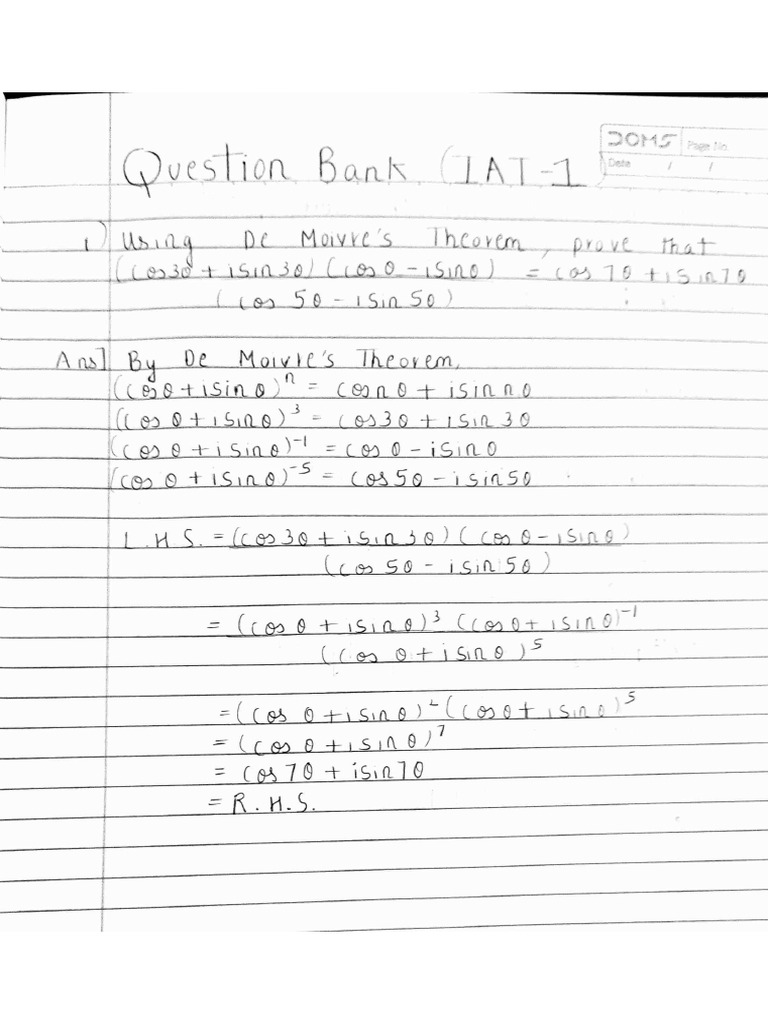 DOMS Page No.
Date / /
Question Bank (IAT-1)
1) Using De Moivre's Theorem, prove that
(cos3θ + isin3θ) (cosθ - isinθ) = cos7θ + isin7θ
(cos 5θ - isin5θ)
Ans] By De Moivre's Theorem,
(cosθ + isinθ)ⁿ = cosnθ + isinnθ
(cosθ + isinθ)³ = cos3θ + isin3θ
(cosθ + isinθ)⁻¹ = cosθ - isinθ
(cosθ + isinθ)⁻⁵ = cos5θ - isin5θ
L.H.S. = (cos3θ + isin3θ) (cosθ - isinθ)
(cos 5θ - isin5θ)
= (cosθ + isinθ)³ (cosθ + isinθ)⁻¹
(cosθ + isinθ)⁵
= (cosθ + isinθ)² (cosθ + isinθ)⁵
= (cosθ + isinθ)⁷
= cos7θ + isin7θ
= R.H.S.